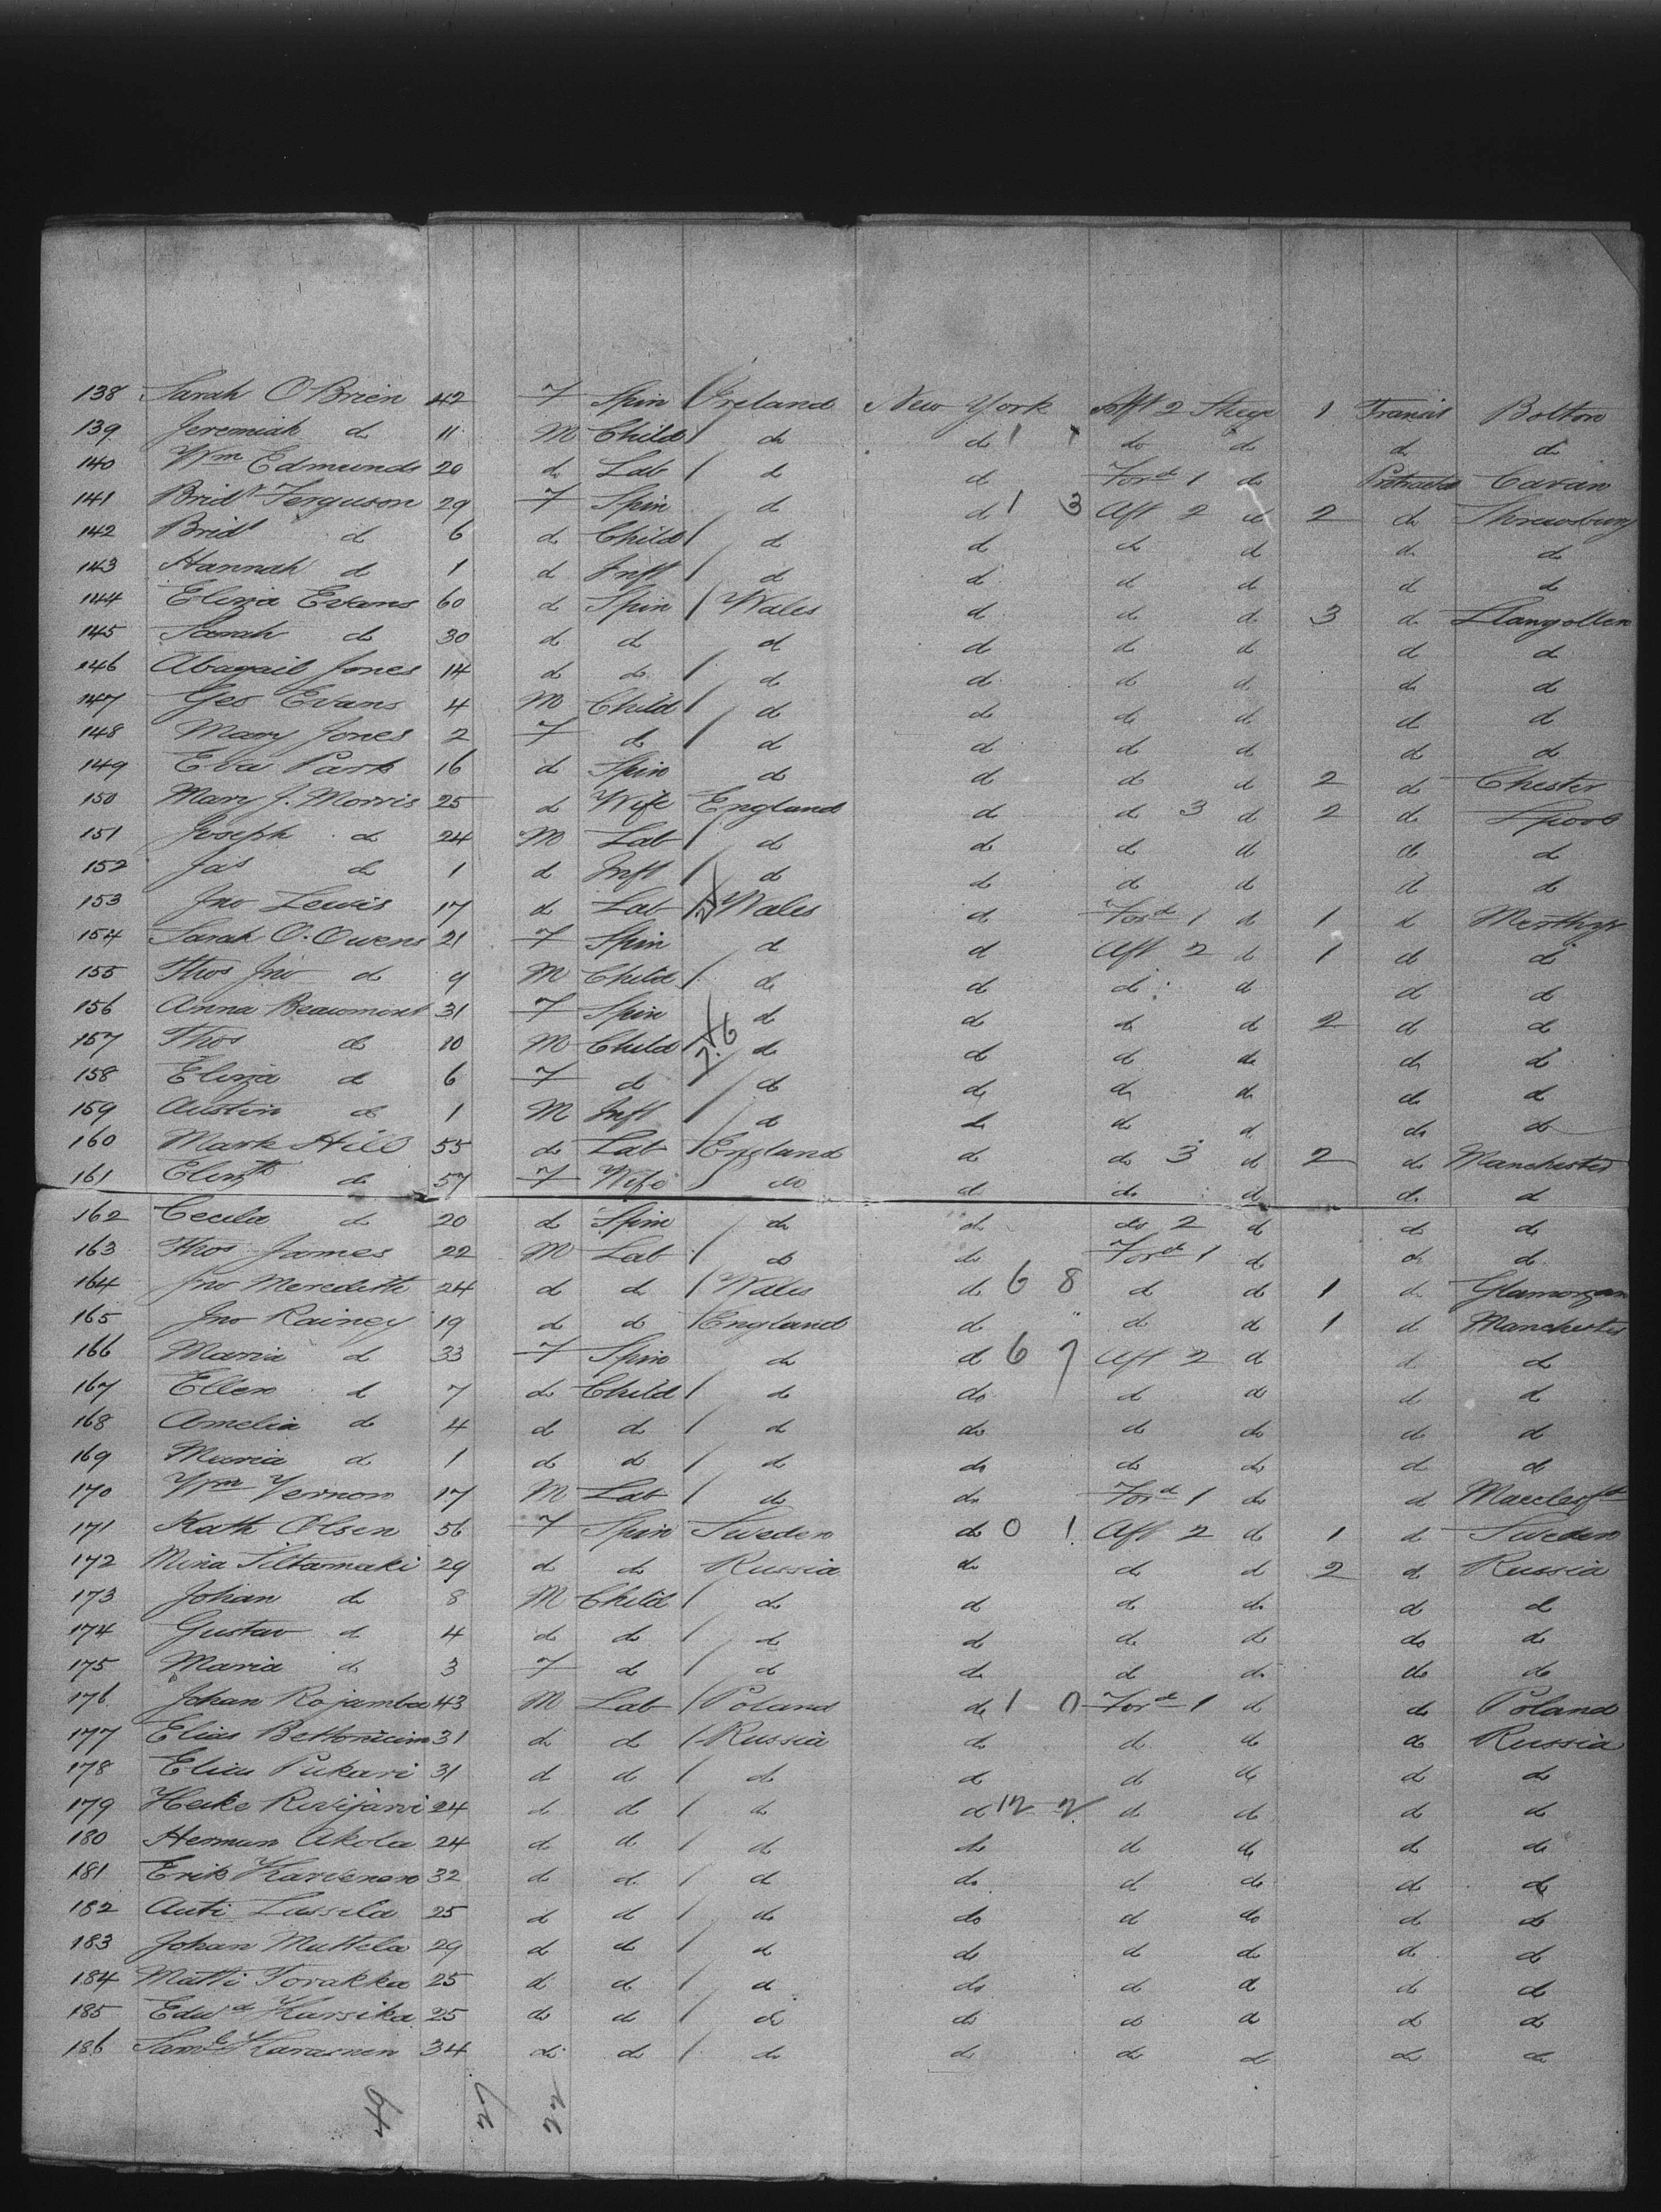 138 Sarah O'Brien 42 F Spin Ireland New York Aft 2 Stege 1 Transit Bolton
139 Jeremiah do 11 M Child / do do 1 1 do do do do
140 Wm Edmunds 20 do Lab / do do Ford 1 do Protracted Cavan
141 Bridt Ferguson 29 F Spin do do 1 3 Aft 2 do 2 do Shrewsbury
142 Bridt do 6 do Child / do do do do do do
143 Hannah do 1 do Inft / do do do do do do
144 Eliza Evans 60 do Spin / Wales do do do 3 do Llangollen
145 Sarah do 30 do do do do do do do do
146 Abagail Jones 14 do do / do do do do do do
147 Geo Evans 4 M Child / do do do do do do
148 Mary Jones 2 F do / do do do do do do
149 Eva Park 16 do Spin do do do do 2 do Chester
150 Mary J. Morris 25 do Wife England do do 3 do 2 do Lpool
151 Joseph do 24 M Lab / do do do do do do
152 Jas do 1 do Inft / do do do do do do
153 Jno Lewis 17 do Lab / Wales do Ford 1 do 1 do Merthyr
154 Sarah O. Owens 21 F Spin do do Aft 2 do 1 do do
155 Thos Jno do 9 M Child / do do do do do do
156 Anna Beaumont 31 F Spin do do do do 2 do do
157 Thos do 10 M Child / do do do do do do
158 Eliza do 6 F do / do do do do do do
159 Austin do 1 M Inft / do do do do do do
160 Mark Hill 55 do Lab / England do do 3 do 2 do Manchester
161 Elizth do 57 F Wife do do do do do do
162 Cecila do 20 do Spin / do do do 2 do do do
163 Thos James 22 M Lab / do do Ford 1 do do do
164 Jno Meredith 24 do do / Wales do 6 8 do do 1 do Glamorgan
165 Jno Rainey 19 do do / England do do do 1 do Manchester
166 Maria do 33 F Spin do do 6 7 Aft 2 do do do
167 Ellen do 7 do Child / do do do do do do
168 Amelia do 4 do do / do do do do do do
169 Maria do 1 do do / do do do do do do
170 Wm Vernon 17 M Lab / do do Ford 1 do do Macclesfd
171 Kath Olsen 56 F Spin Sweden do 0 1 Aft 2 do 1 do Sweden
172 Mina Siltamaki 29 do do Russia do do do 2 do Russia
173 Johan do 8 M Child / do do do do do do
174 Gustav do 4 do do / do do do do do do
175 Maria do 3 F do / do do do do do do
176 Johan Rojamba 43 M Lab / Poland do 1 0 Ford 1 do do Poland
177 Elias 31 do do / Russia do do do do Russia
178 Elias Pukari 31 do do / do do do do do do
179 Heike Rivijarvi 24 do do / do do 12 2 do do do do
180 Herman Akola 24 do do / do do do do do do
181 Erik Karvenon 32 do do / do do do do do do
182 Anti Lassila 25 do do / do do do do do do
183 Johan Muttela 29 do do / do do do do do do
184 Matti Torakka 25 do do / do do do do do do
185 Edwd Karsika 25 do do / do do do do do do
186 Saml Karasnen 34 do do / do do do do do do
22